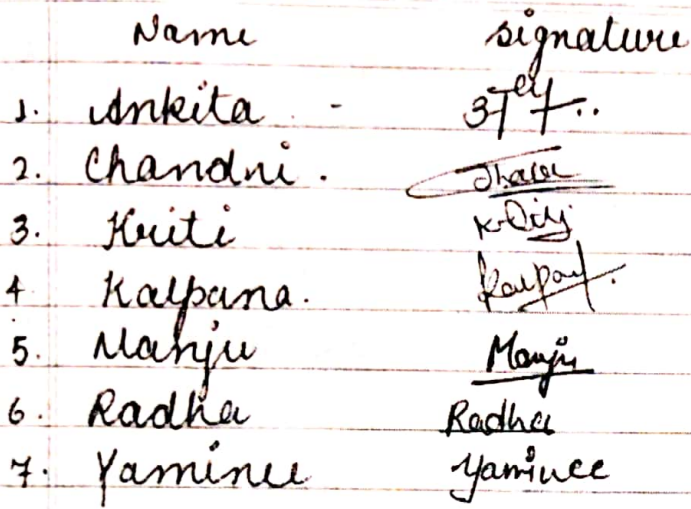 Name signature
1. Ankita -
2. Chandni.
3. Kriti
4 Kalpana.
5. Manju Manju
6. Radha Radha
7. Yaminee Yaminee